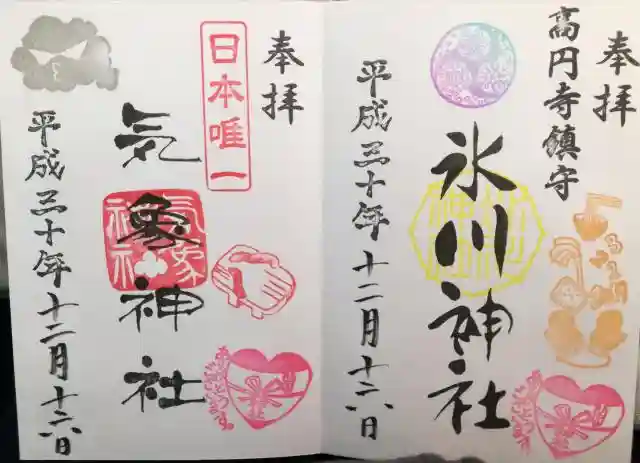 奉拝
高円寺鎮守
氷川神社
平成三十年十二月十六日
奉拝
日本唯一
気象神社
気象神社
平成三十年十二月十六日